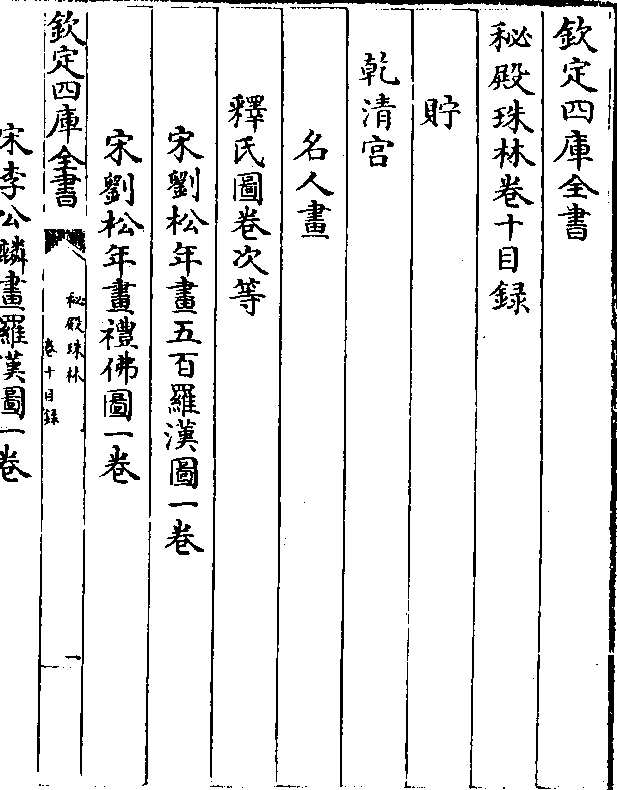 欽定四庫全書
秘殿珠林卷十目録
貯
乾清宮
名人畫
釋氏圖卷次等
宋劉松年畫五百羅漢圖一卷
宋劉松年畫禮佛圖一卷
欽定四庫全書
秘殿珠林
卷十目録
一
宋李公麟畫羅漢圖一卷